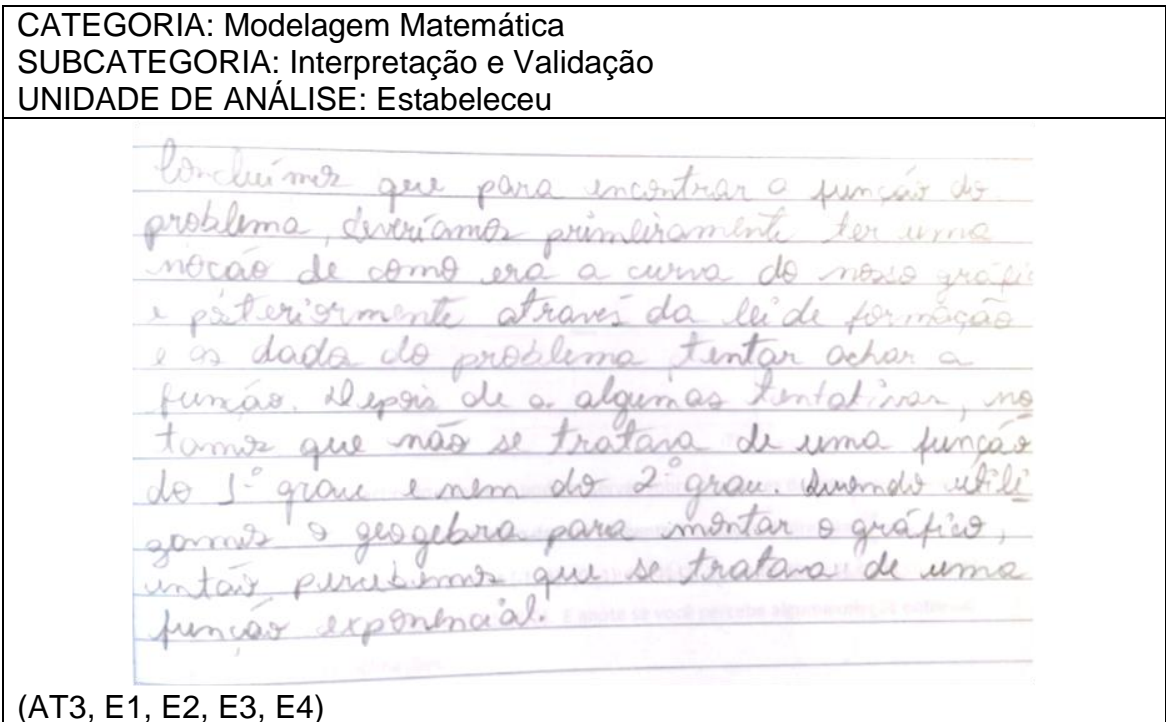 CATEGORIA: Modelagem Matemática
SUBCATEGORIA: Interpretação e Validação
UNIDADE DE ANÁLISE: Estabeleceu
Concluímos que para encontrar a função do
problema, deveríamos primeiramente ter uma
noção de como era a curva do nosso gráfic
e posteriormente através da lei de formação
e os dada do problema tentar achar a
função. Depois de a algumas tentativas, no
tamos que não se tratava de uma função
do 1º grau e nem do 2º grau. Quando utili
zamos o geogebra para montar o gráfico,
então percebemos que se tratava de uma
função exponencial.
(AT3, E1, E2, E3, E4)